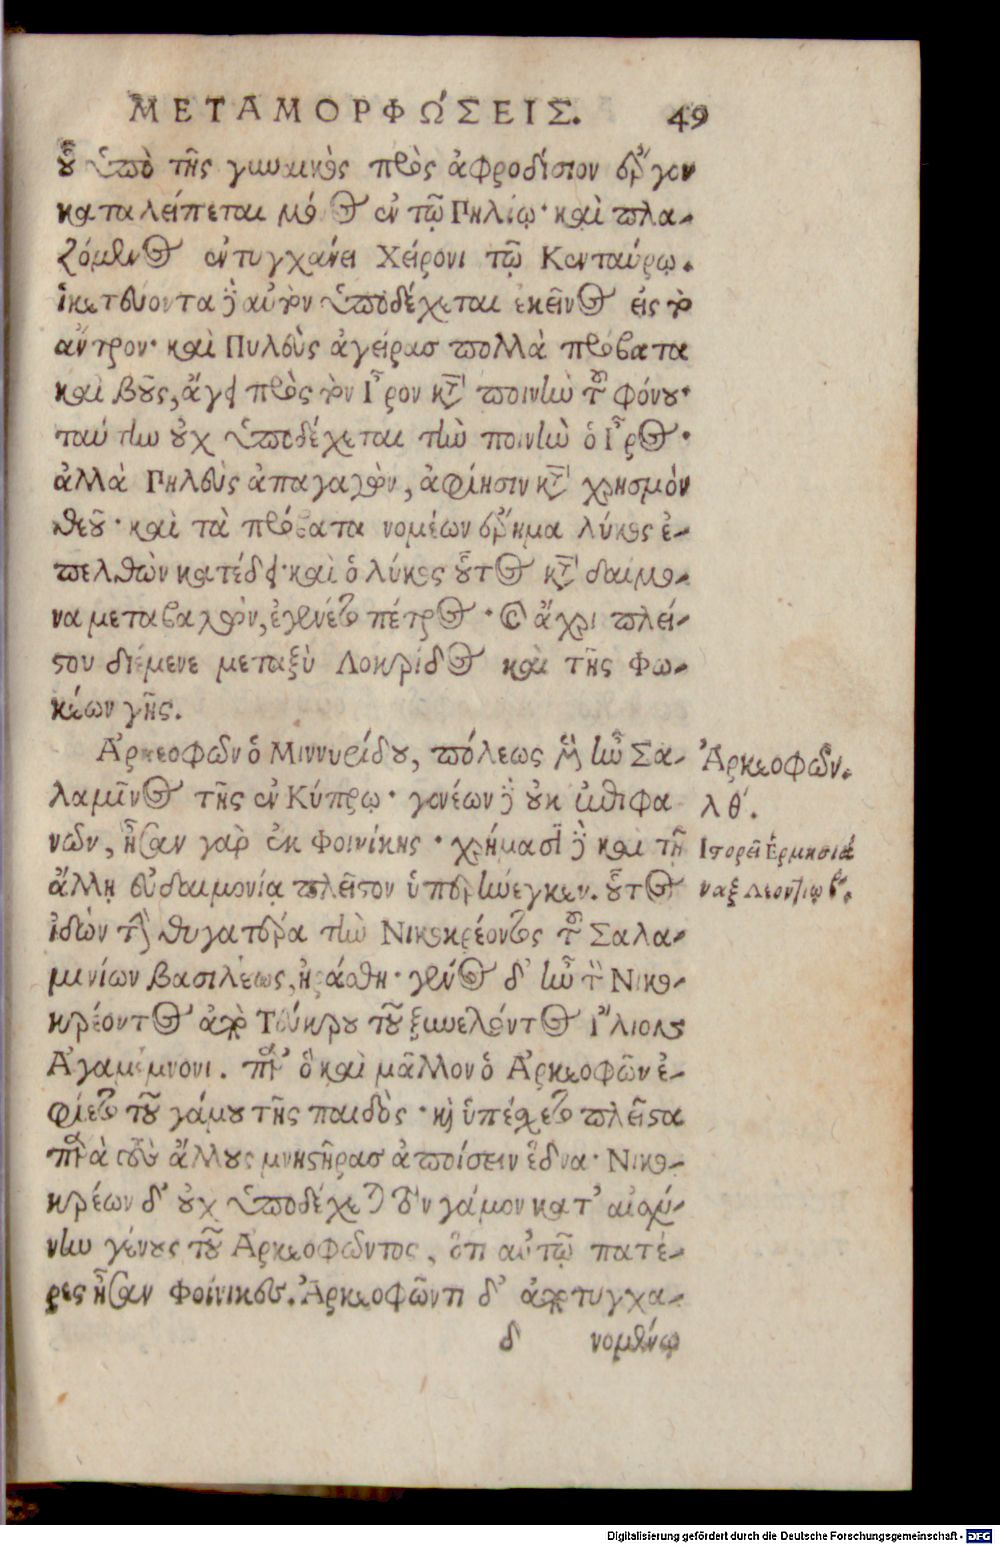 ΜΕΤΑΜΟΡΦΏΣΕΙΣ. 49
ὃ ὑπὸ τῆς γυναικὸς πρὸς ἀφροδίσιον ἔργον
καταλείπεται μόνος ἐν τῷ Πηλίῳ· καὶ πλα-
ζόμενος ἐντυγχάνει Χείρονι τῷ Κενταύρῳ.
ἱκετεύοντα δὲ αὐτὸν ὑποδέχεται ἐκεῖνος εἰς τὸ
ἄντρον· καὶ Πηλεὺς ἀγείρας πολλὰ πρόβατα
καὶ βοῦς, ἄγει πρὸς τὸν Ἶρον κατὰ ποινὴν τοῦ φόνου·
ταύτην οὐχ ὑποδέχεται τὴν ποινὴν ὁ Ἶρος·
ἀλλὰ Πηλεὺς ἀπαγαγὼν, ἀφίησιν κατὰ χρησμὸν
θεοῦ· καὶ τὰ πρόβατα νομέων ἔρημα λύκος ἐ-
πελθὼν κατέδει· καὶ ὁ λύκος οὗτος κατὰ δαίμο-
να μεταβαλὼν, ἐγένετο πέτρος· καὶ ἄχρι πλεί-
στου διέμενε μεταξὺ Λοκρίδος καὶ τῆς Φω-
κέων γῆς.
Ἀρκεοφῶν ὁ Μιννυρίδου, πόλεως μὲν ἦν Σα-
λαμῖνος τῆς ἐν Κύπρῳ· γονέων δὲ οὐκ ἐπιφα
νῶν, ἦσαν γὰρ ἐκ Φοινίκης· χρήμασι δὲ καὶ τῇ
ἄλλῃ εὐδαιμονίᾳ πλεῖστον ὑπερήνεγκεν. οὗτος
ἰδὼν τὴν θυγατέρα τὴν Νικοκρέοντος τοῦ Σαλα-
μινίων βασιλέως, ἠράσθη· γένος δ' ἦν τοῦ Νικο-
κρέοντος ἀπὸ Τεύκρου τοῦ ξυνελόντος Ἴλιον
Ἀγαμέμνονι. παρ' ὃ καὶ μᾶλλον ὁ Ἀρκεοφῶν ἐ-
φίετο τοῦ γάμου τῆς παιδὸς· καὶ ὑπέσχετο πλεῖστα
παρὰ τοὺς ἄλλους μνηστῆρας ἀποίσειν ἕδνα· Νικο-
κρέων δ' οὐχ ὑποδέχεται τὸν γάμον κατ' αἰσχύ-
νην γένους τοῦ Ἀρκεοφῶντος, ὅτι αὐτῷ πατέ-
ρες ἦσαν Φοίνικες. Ἀρκεοφῶντι δ' ἀποτυγχα-
δ νομένῳ
Ἀρκεοφῶν.
λθ´.
Ἱστορεῖ Ἑρμησιά
ναξ Λεοντίῳ β´.
Digitalisierung gefördert durch die Deutsche Forschungsgemeinschaft - DFG